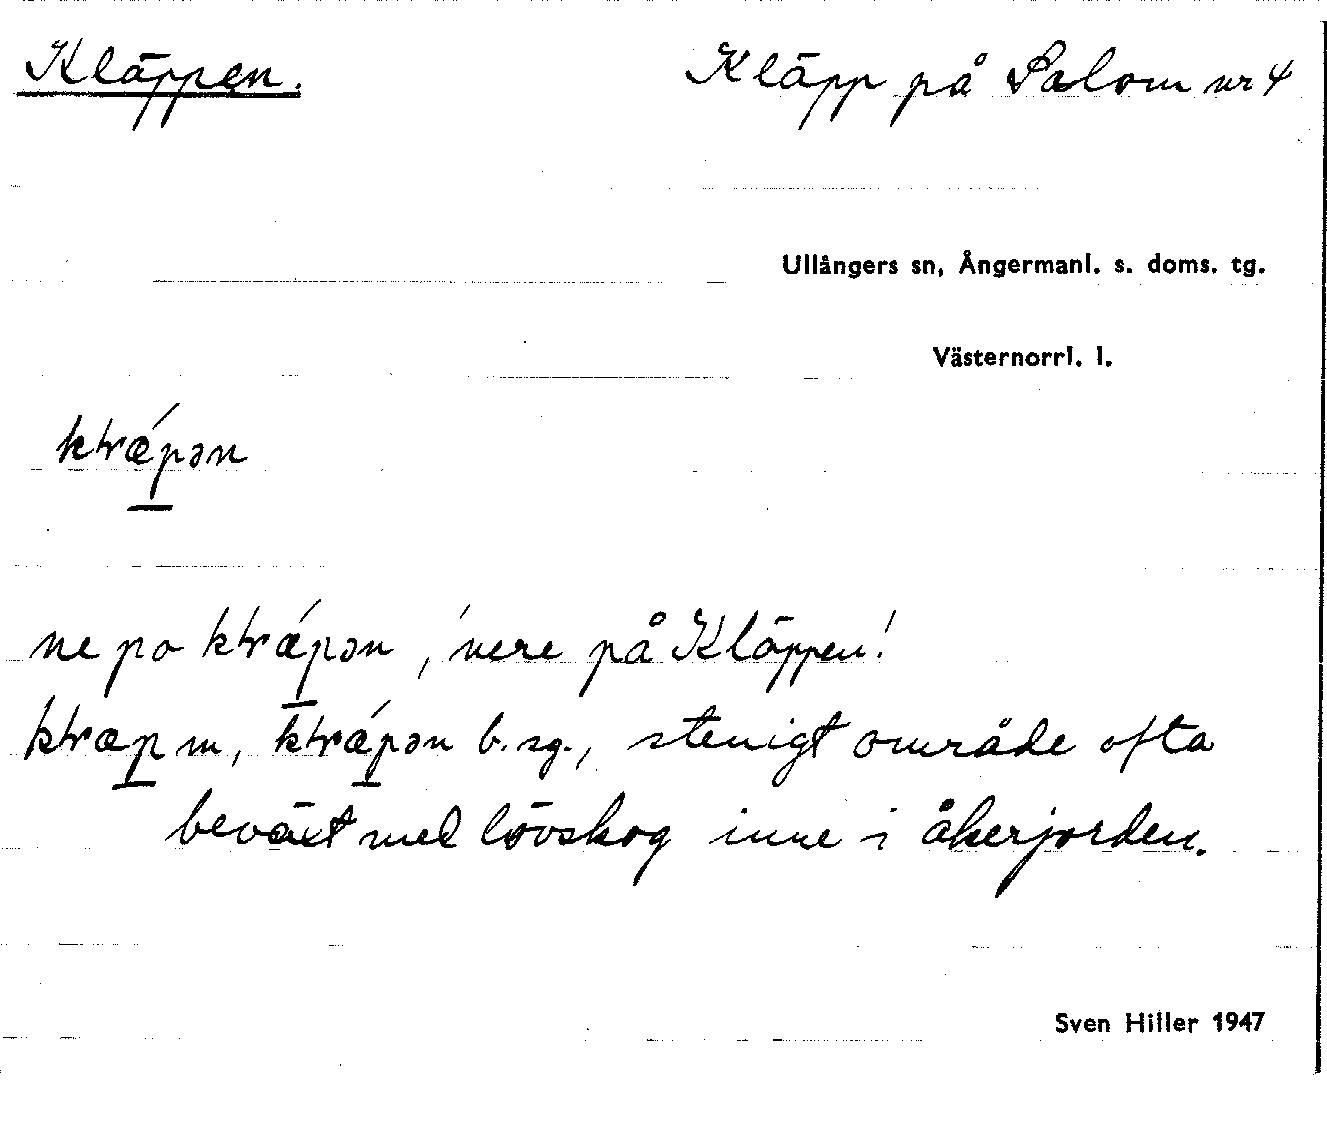 Kläppen.
Kläpp på Salom nr 4
Ullångers sn, Ångermanl. s. doms. tg.
Västernorrl. l.
ktrǽpən
ne po ktrǽpən, 'nere på Kläppen'
ktræp m, ktrǽpən b. sg., stenigt område ofta
beväxt med lövskog inne i åkerjorden.
Sven Hiller 1947